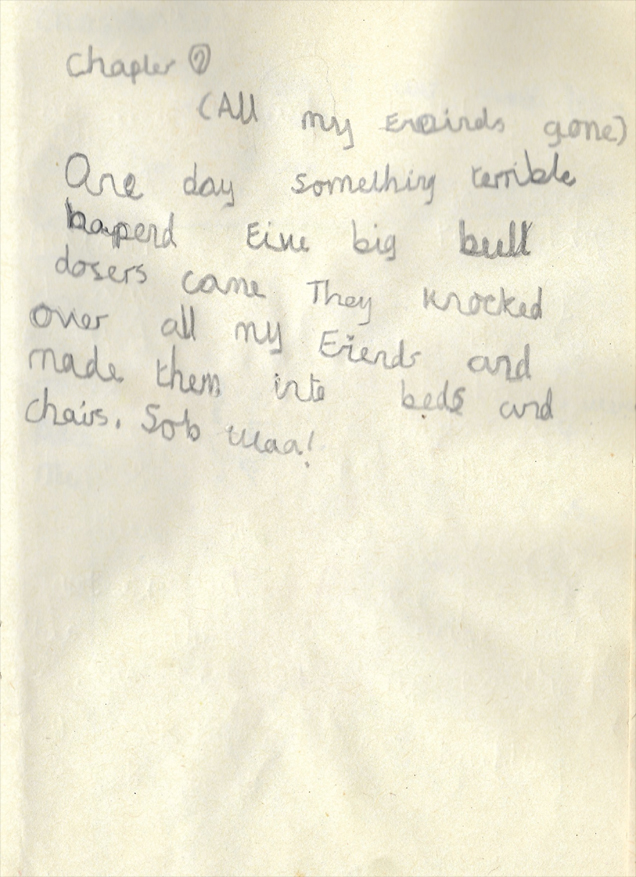 Chapter ②
(All my Freinds gone)
One day something terrible
haperd Five big bull
dosers came They knocked
over all my Friends and
made them into beds and
chairs. Sob Waa!